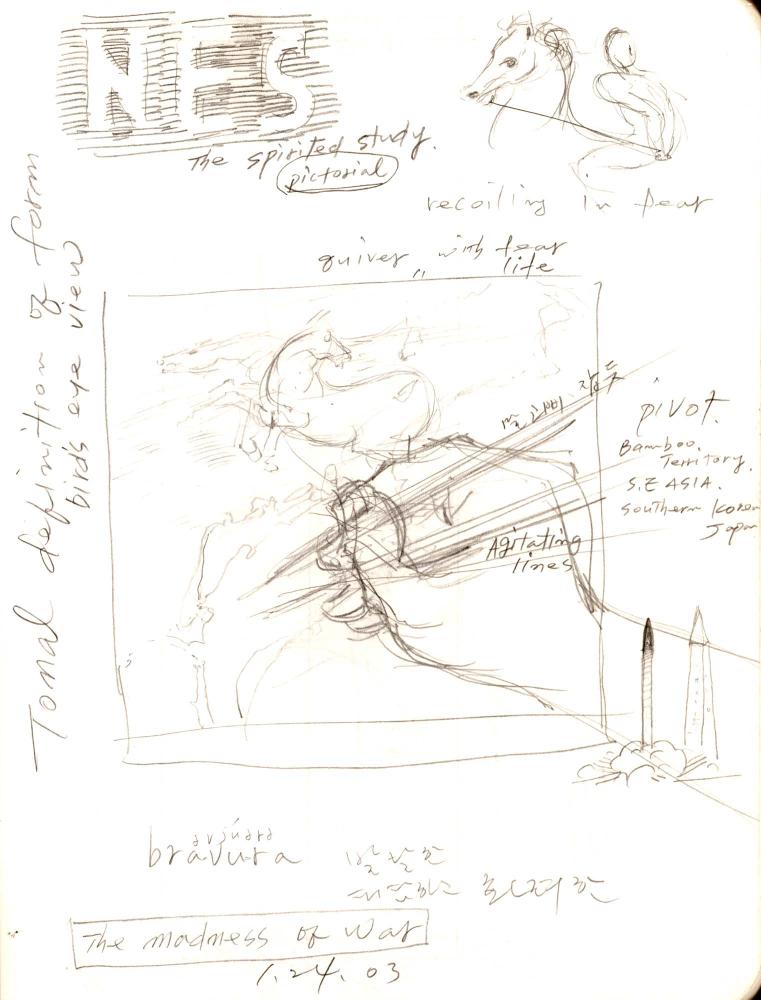 NES
The spirited study.
pictorial
recoiling in fear
quiver with fear
" life
Tonal definition of form
birds eye view
pivot.
Bamboo.
Territory.
S.E ASIA.
Southern Korea
Japan
Agitating
lines
əvjúərə
bravura 발랄한
대담하고 화려한
The madness of War
1.24.03